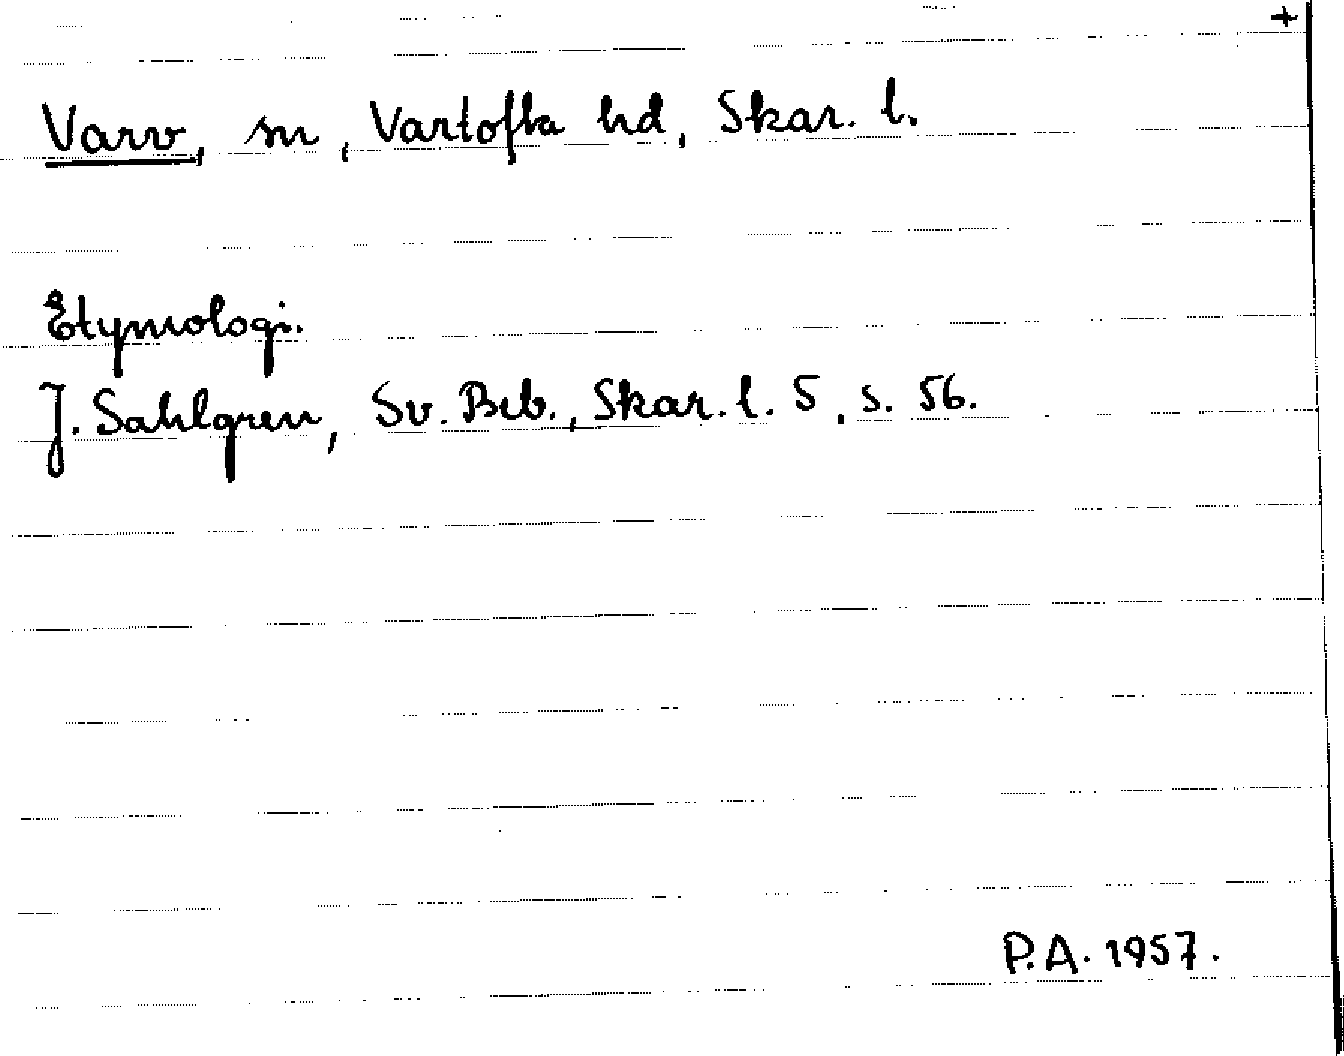 +
Varv, sn, Vartofta hd, Skar. l.
Etymologi.
J. Sahlgren, Sv. Beb., Skar. l. 5, s. 56.
P.A. 1957.